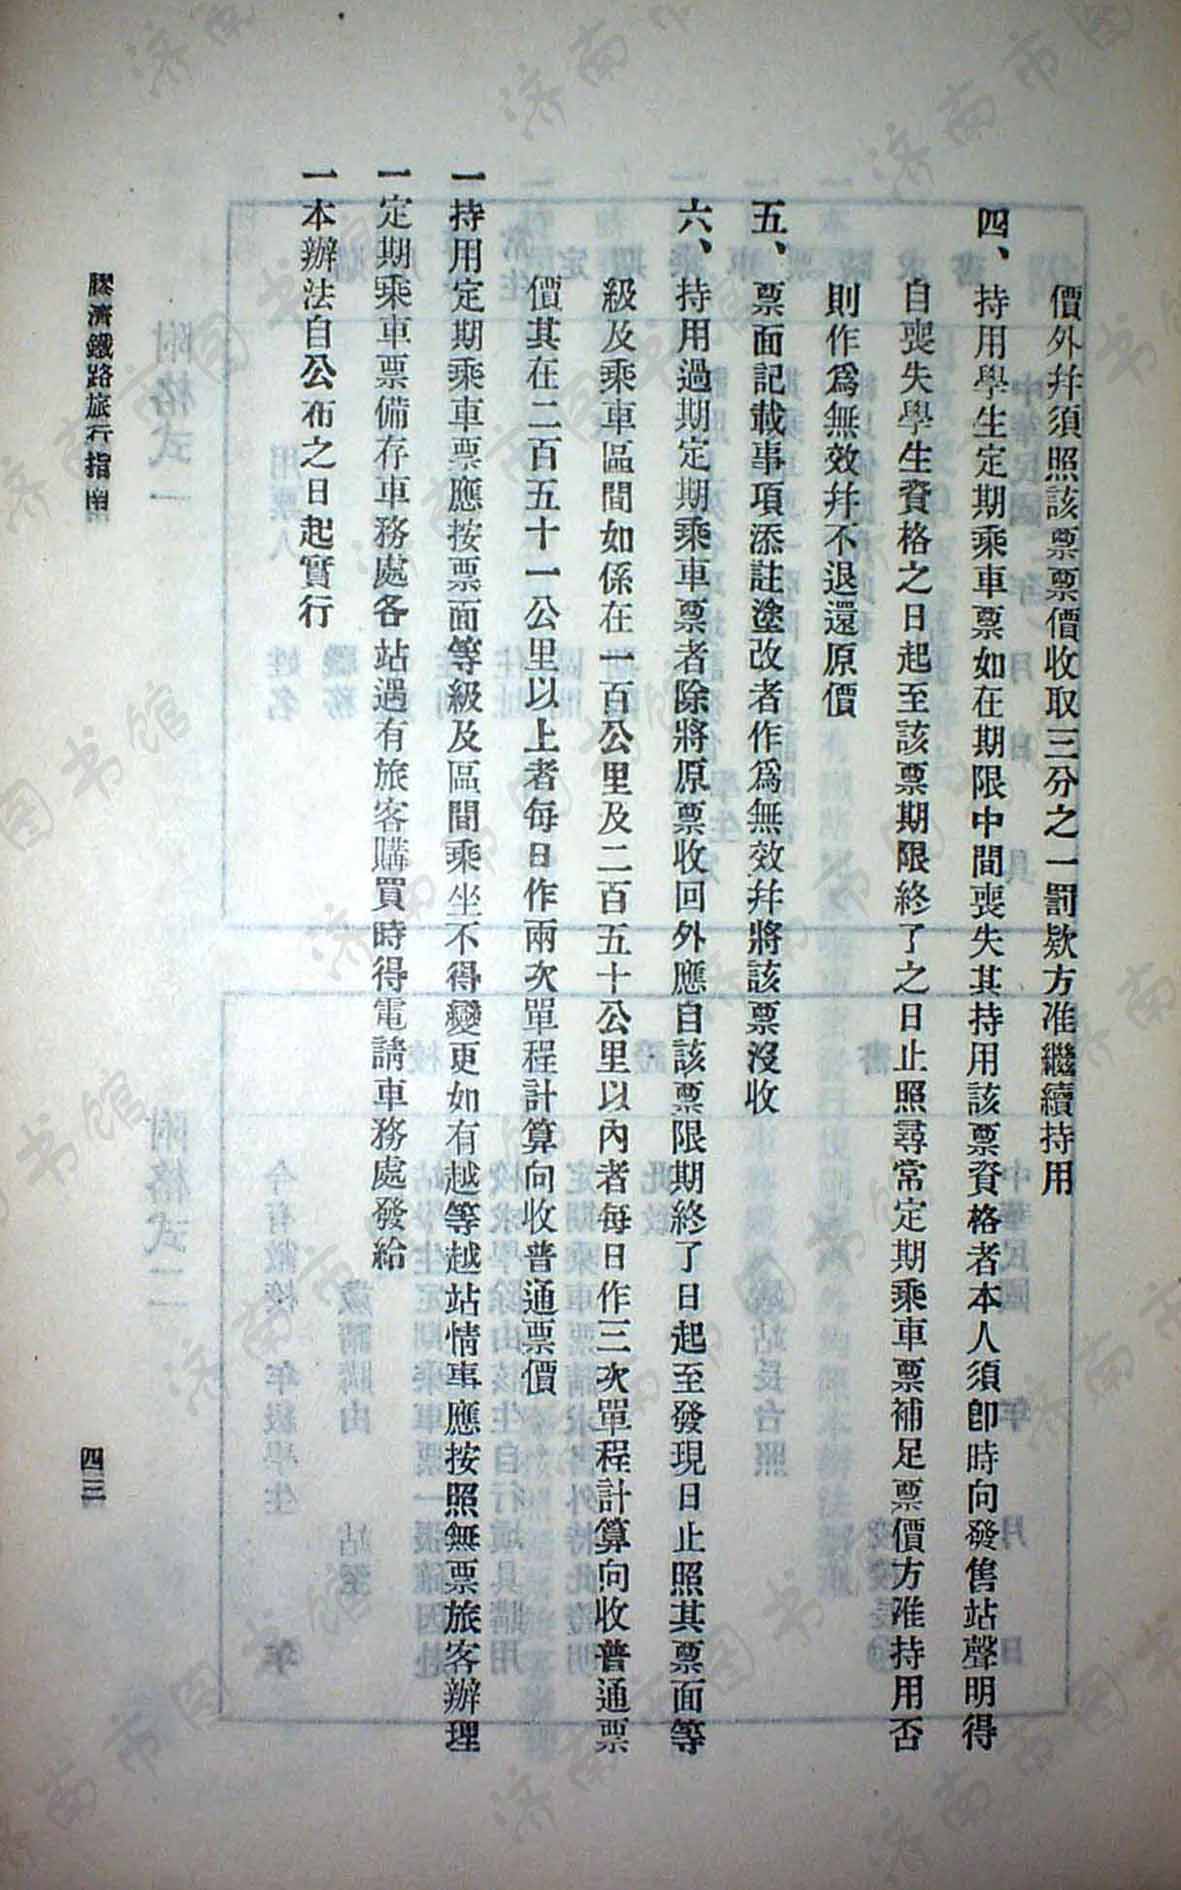 價外幷須照該票票價收取三分之一罰欵方准繼續持用
四、持用學生定期乘車票如在期限中間喪失其持用該票資格者本人須卽時向發售站聲明得
自喪失學生資格之日起至該票期限終了之日止照尋常定期乘車票補足票價方准持用否
則作爲無效幷不退還原價
五、票面記載事項添註塗改者作爲無效幷將該票沒收
六、持用過期定期乘車票者除將原票收回外應自該票限期終了日起至發現日止照其票面等
級及乘車區間如係在一百公里及二百五十公里以內者每日作三次單程計算向收普通票
價其在二百五十一公里以上者每日作兩次單程計算向收普通票價
一持用定期乘車票應按票面等級及區間乘坐不得變更如有越等越站情事應按照無票旅客辦理
一定期乘車票備存車務處各站遇有旅客購買時得電請車務處發給
一本辦法自公布之日起實行
膠濟鐵路旅行指南
四三
济南市图书馆